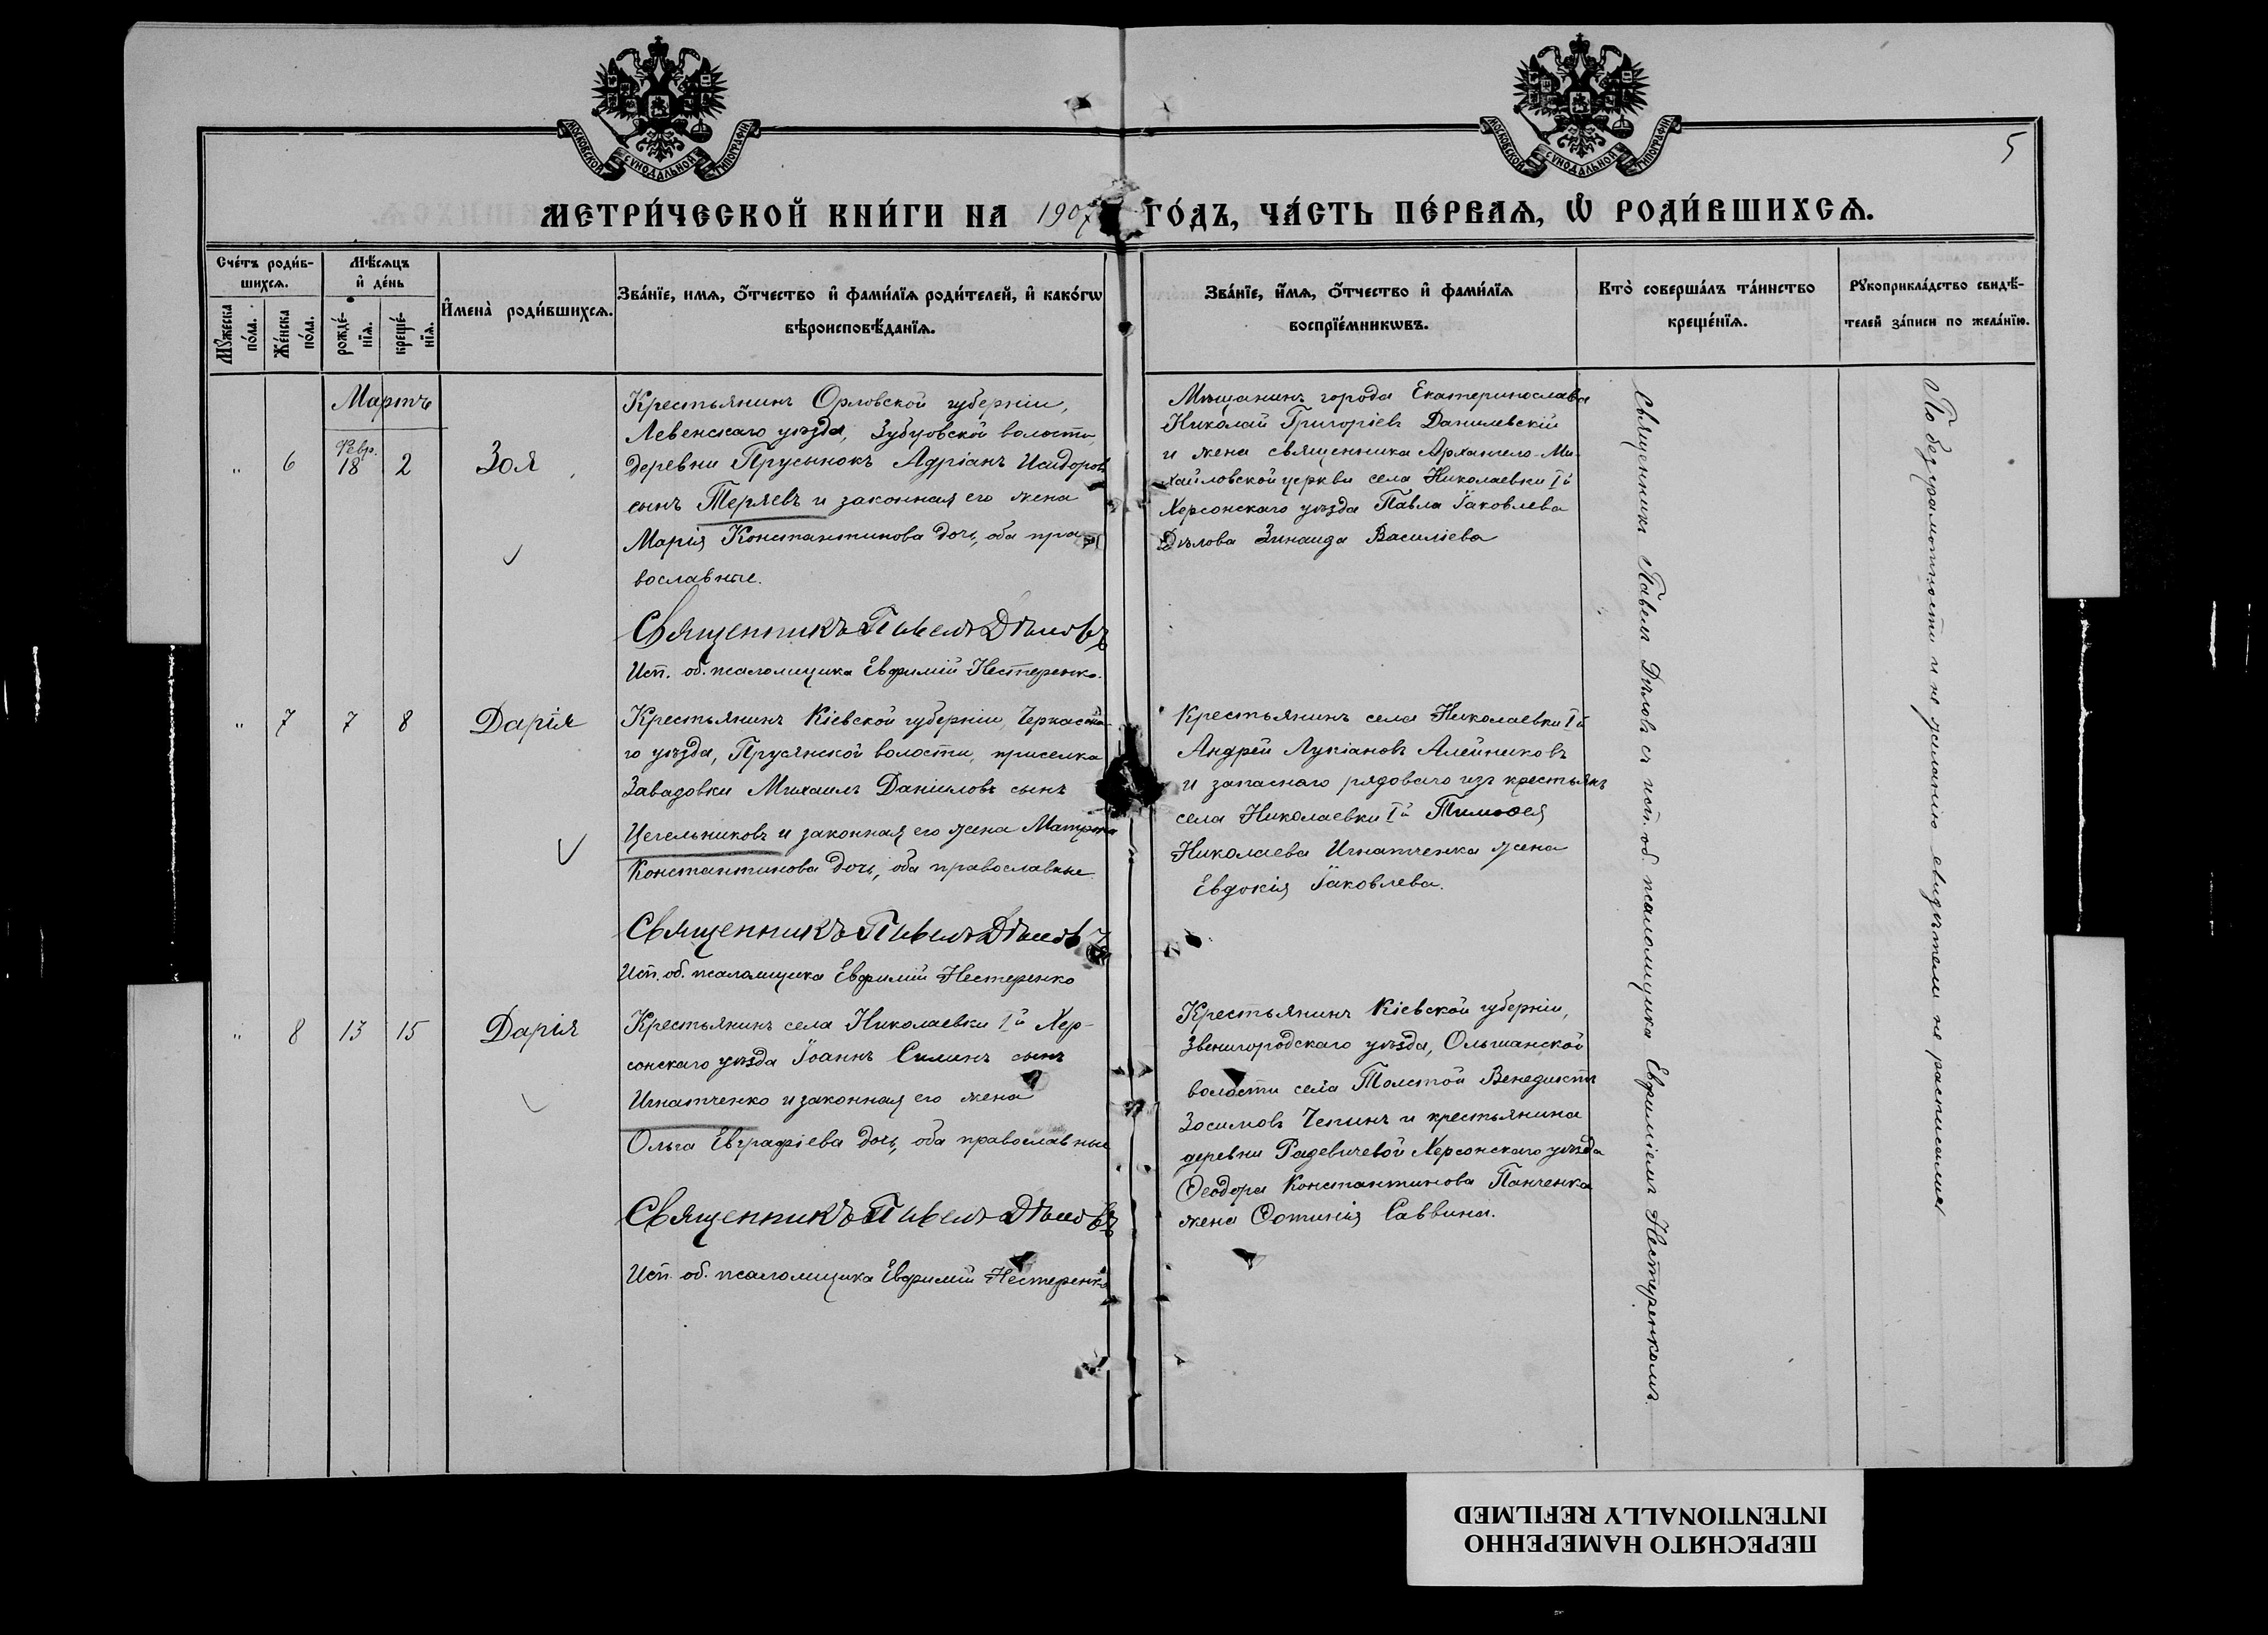 МОСКОВСКОЙ СѴНОДАЛЬНОЙ ТИПОГРАФІИ
МОСКОВСКОЙ СѴНОДАЛЬНОЙ ТИПОГРАФІИ
5
МЕТРИ́ЧЕСКОЙ КНИ́ГИ НА 1907 ГО́ДЪ, ЧА́СТЬ ПЕ́РВАѦ, Ѡ҆ РОДИ́ВШИХСѦ.
Сче́тъ роди́в-
шихсѧ.
Мꙋ́жеска
по́ла.
Же́нска
по́ла.
Мѣ́сѧцъ
и҆ де́нь
рожде́-
нїѧ.
креще́-
нїѧ.
И҆мена̀ роди́вшихсѧ.
Зва́нїе, имѧ, ѻ҆́тчество и҆ фами́лїѧ роди́телей, и҆ како́гѡ
вѣроисповѣ́данїѧ.
Зва́нїе, и҆́мѧ, ѻ҆́тчество и҆ фами́лїѧ
воспрїе́мникѡвъ.
Кто̀ соверша́лъ та́инство
креще́нїѧ.
Рꙋкоприкла́дство свидѣ́-
телей за́писи по жела́нїю.
Мартъ
" 6 Февр. 18 2 Зоя
Крестьянинъ Орловской губерніи,
Левенскаго уѣзда, Зубцовской волости,
деревни Прусынокъ Адріанъ Исидоровъ
сынъ Теряевъ и законная его жена
Марія Константинова дочь, оба пра-
вославные.
Священникъ Павелъ Дѣловъ
Исп. об. псаломщика Евфимій Нестеренко.
Мѣщанинъ города Екатеринослава
Николай Григоріевъ Данилевскій
и жена священника Архангело-Ми-
хайловской церкви села Николаевки 1й
Херсонскаго уѣзда Павла Іаковлева
Дѣлова Зинаида Василіева
" 7 7 8 Дарія
Крестьянинъ Кіевской губерніи, Черкасска-
го уѣзда, Прусянской волости, приселка
Завадовки Михаилъ Даніиловъ сынъ
Цегельниковъ и законная его жена Матрона
Константинова дочь, оба православные
Священникъ Павелъ Дѣловъ
Исп. об. псаломщика Евфимій Нестеренко
Крестьянинъ села Николаевки 1й
Андрей Лукіановъ Алейниковъ
и запаснаго рядоваго изъ крестьянъ
села Николаевки 1й Тимоѳея
Николаева Игнатченка жена
Евдокія Іаковлева.
" 8 13 15 Дарія
Крестьянинъ села Николаевки 1й Хер-
сонскаго уѣзда Іоаннъ Силинъ сынъ
Игнатченко и законная его жена
Ольга Евграфіева дочь, оба православные
Священникъ Павелъ Дѣловъ
Исп. об. псаломщика Евфимій Нестеренко
Крестьянинъ Кіевской губерніи,
Звенигородскаго уѣзда, Ольшанской
волости села Толстой Венедиктъ
Зосимовъ Чепинъ и крестьянина
деревни Радевичевой Херсонскаго уѣзда
Ѳеодора Константинова Панченка
жена Фотинія Саввина.
Священникъ Павелъ Дѣловъ съ исп. об. псаломщика Евфиміемъ Нестеренкомъ.
По безграмотности и не желанію свидѣтели не расписались
ПЕРЕСНЯТО НАМЕРЕННО
INTENTIONALLY REFILMED